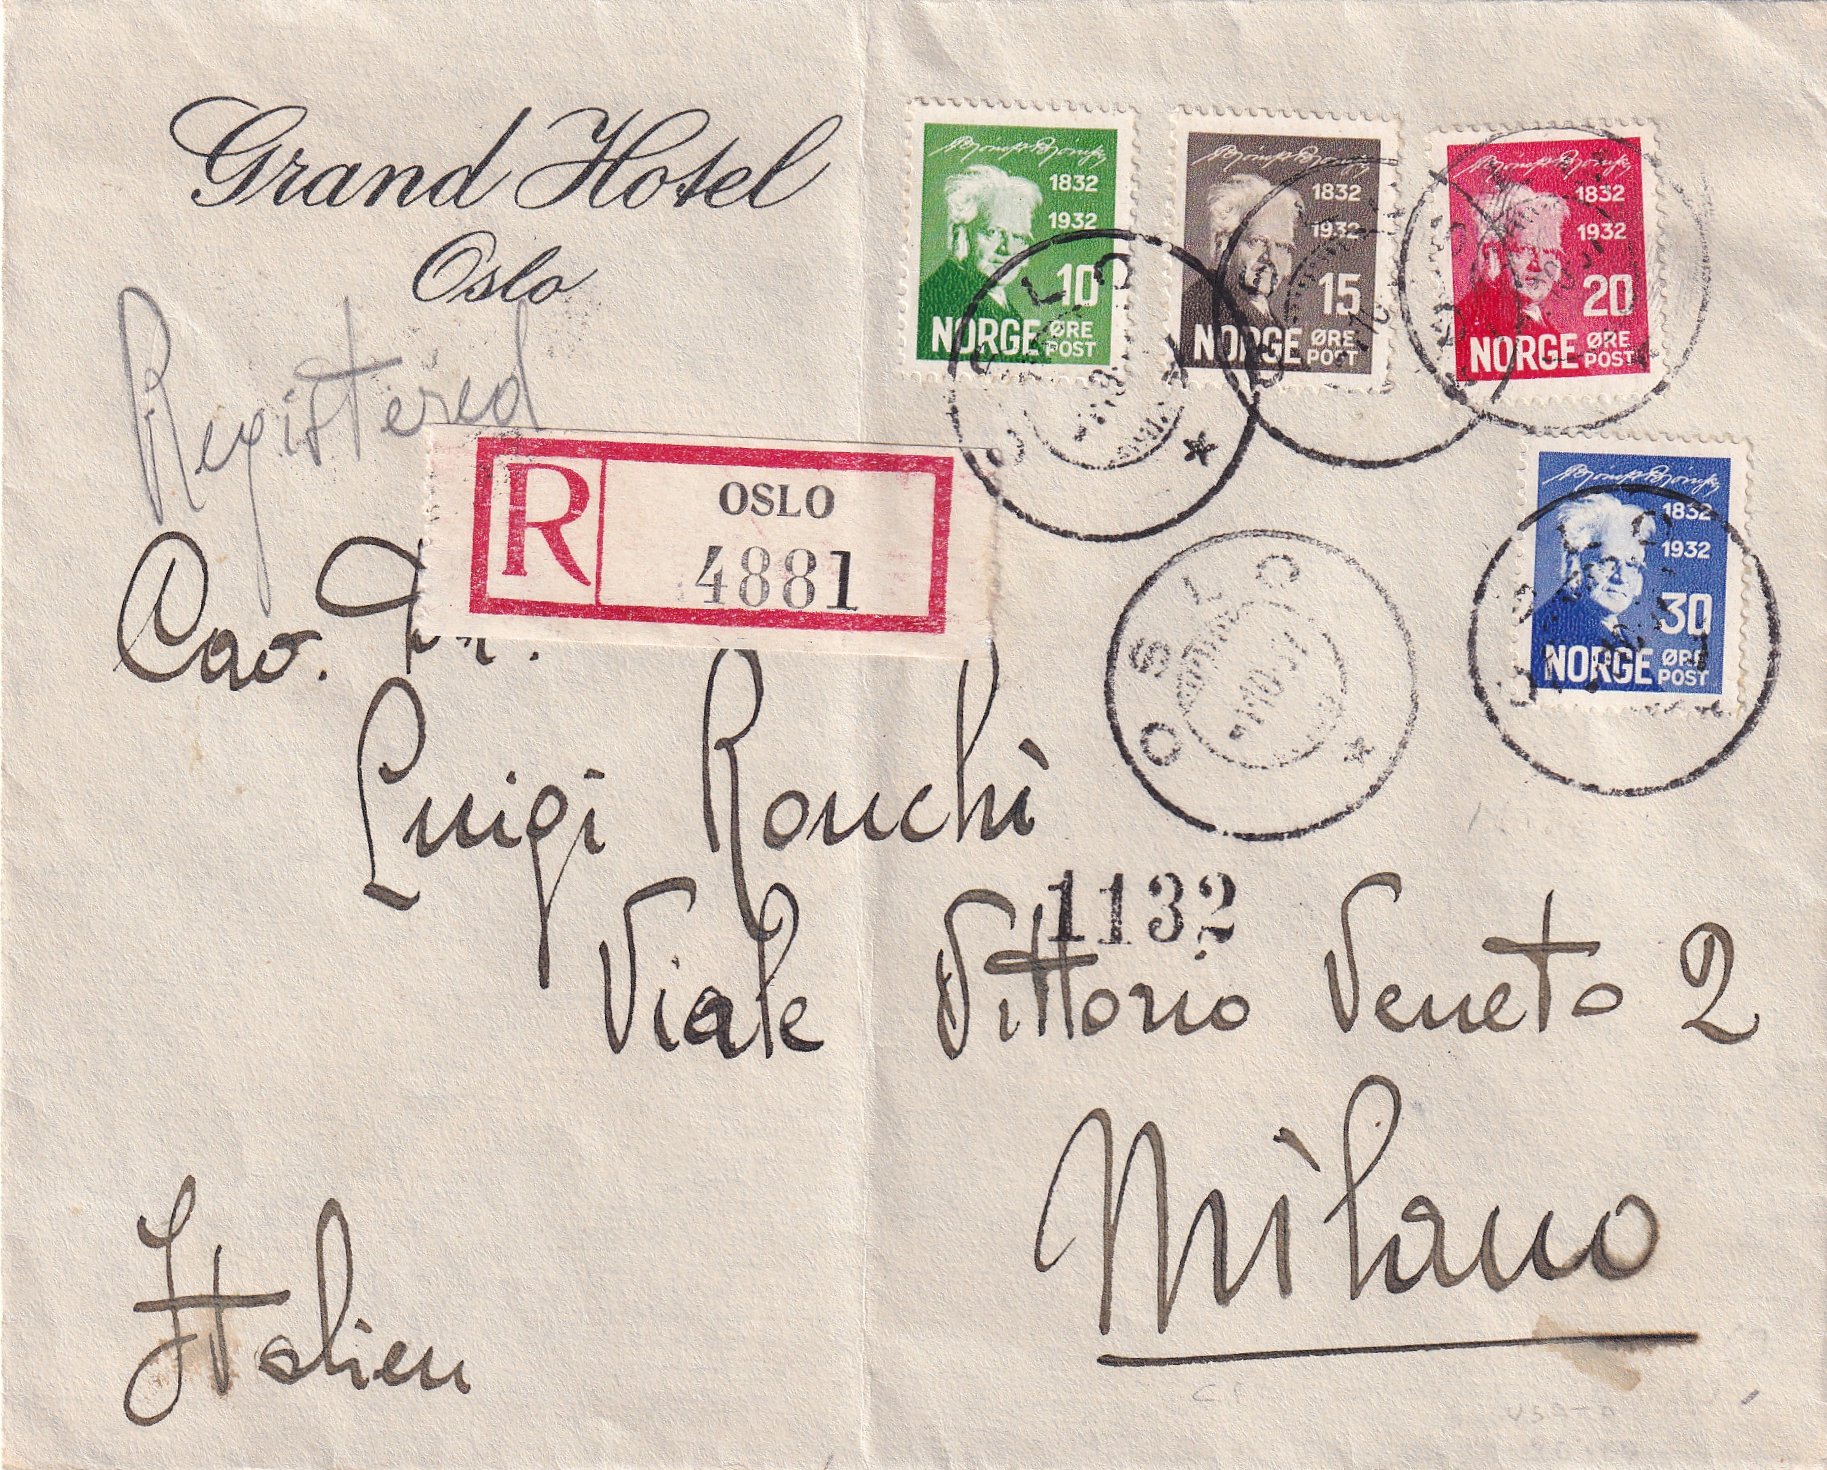 Grand Hotel
Oslo
Registered
R OSLO
4881
1832
1932
10
NORGE ØRE POST
1832
1932
15
NORGE ØRE POST
1832
1932
20
NORGE ØRE POST
1832
1932
30
NORGE ØRE POST
OSLO
OSLO
OSLO
OSLO
OSLO
Cav. Dr.
Luigi Ronchi
1132
Viale Vittorio Veneto 2
Milano
Italien